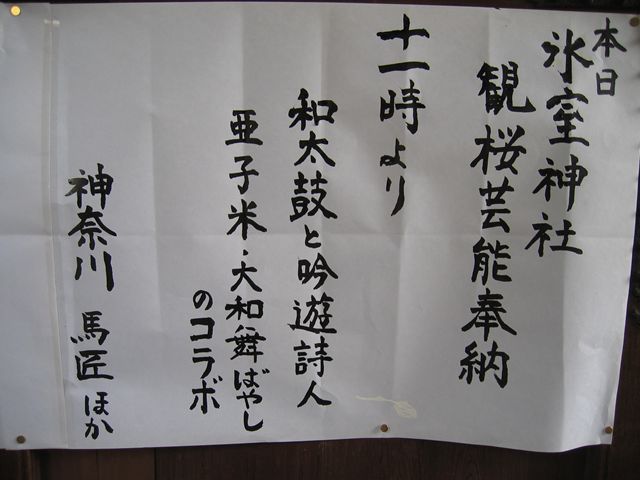 本日
氷室神社
観桜芸能奉納
十一時より
和太鼓と吟遊詩人
亜子米・大和舞ばやし
のコラボ
神奈川 馬匠 ほか